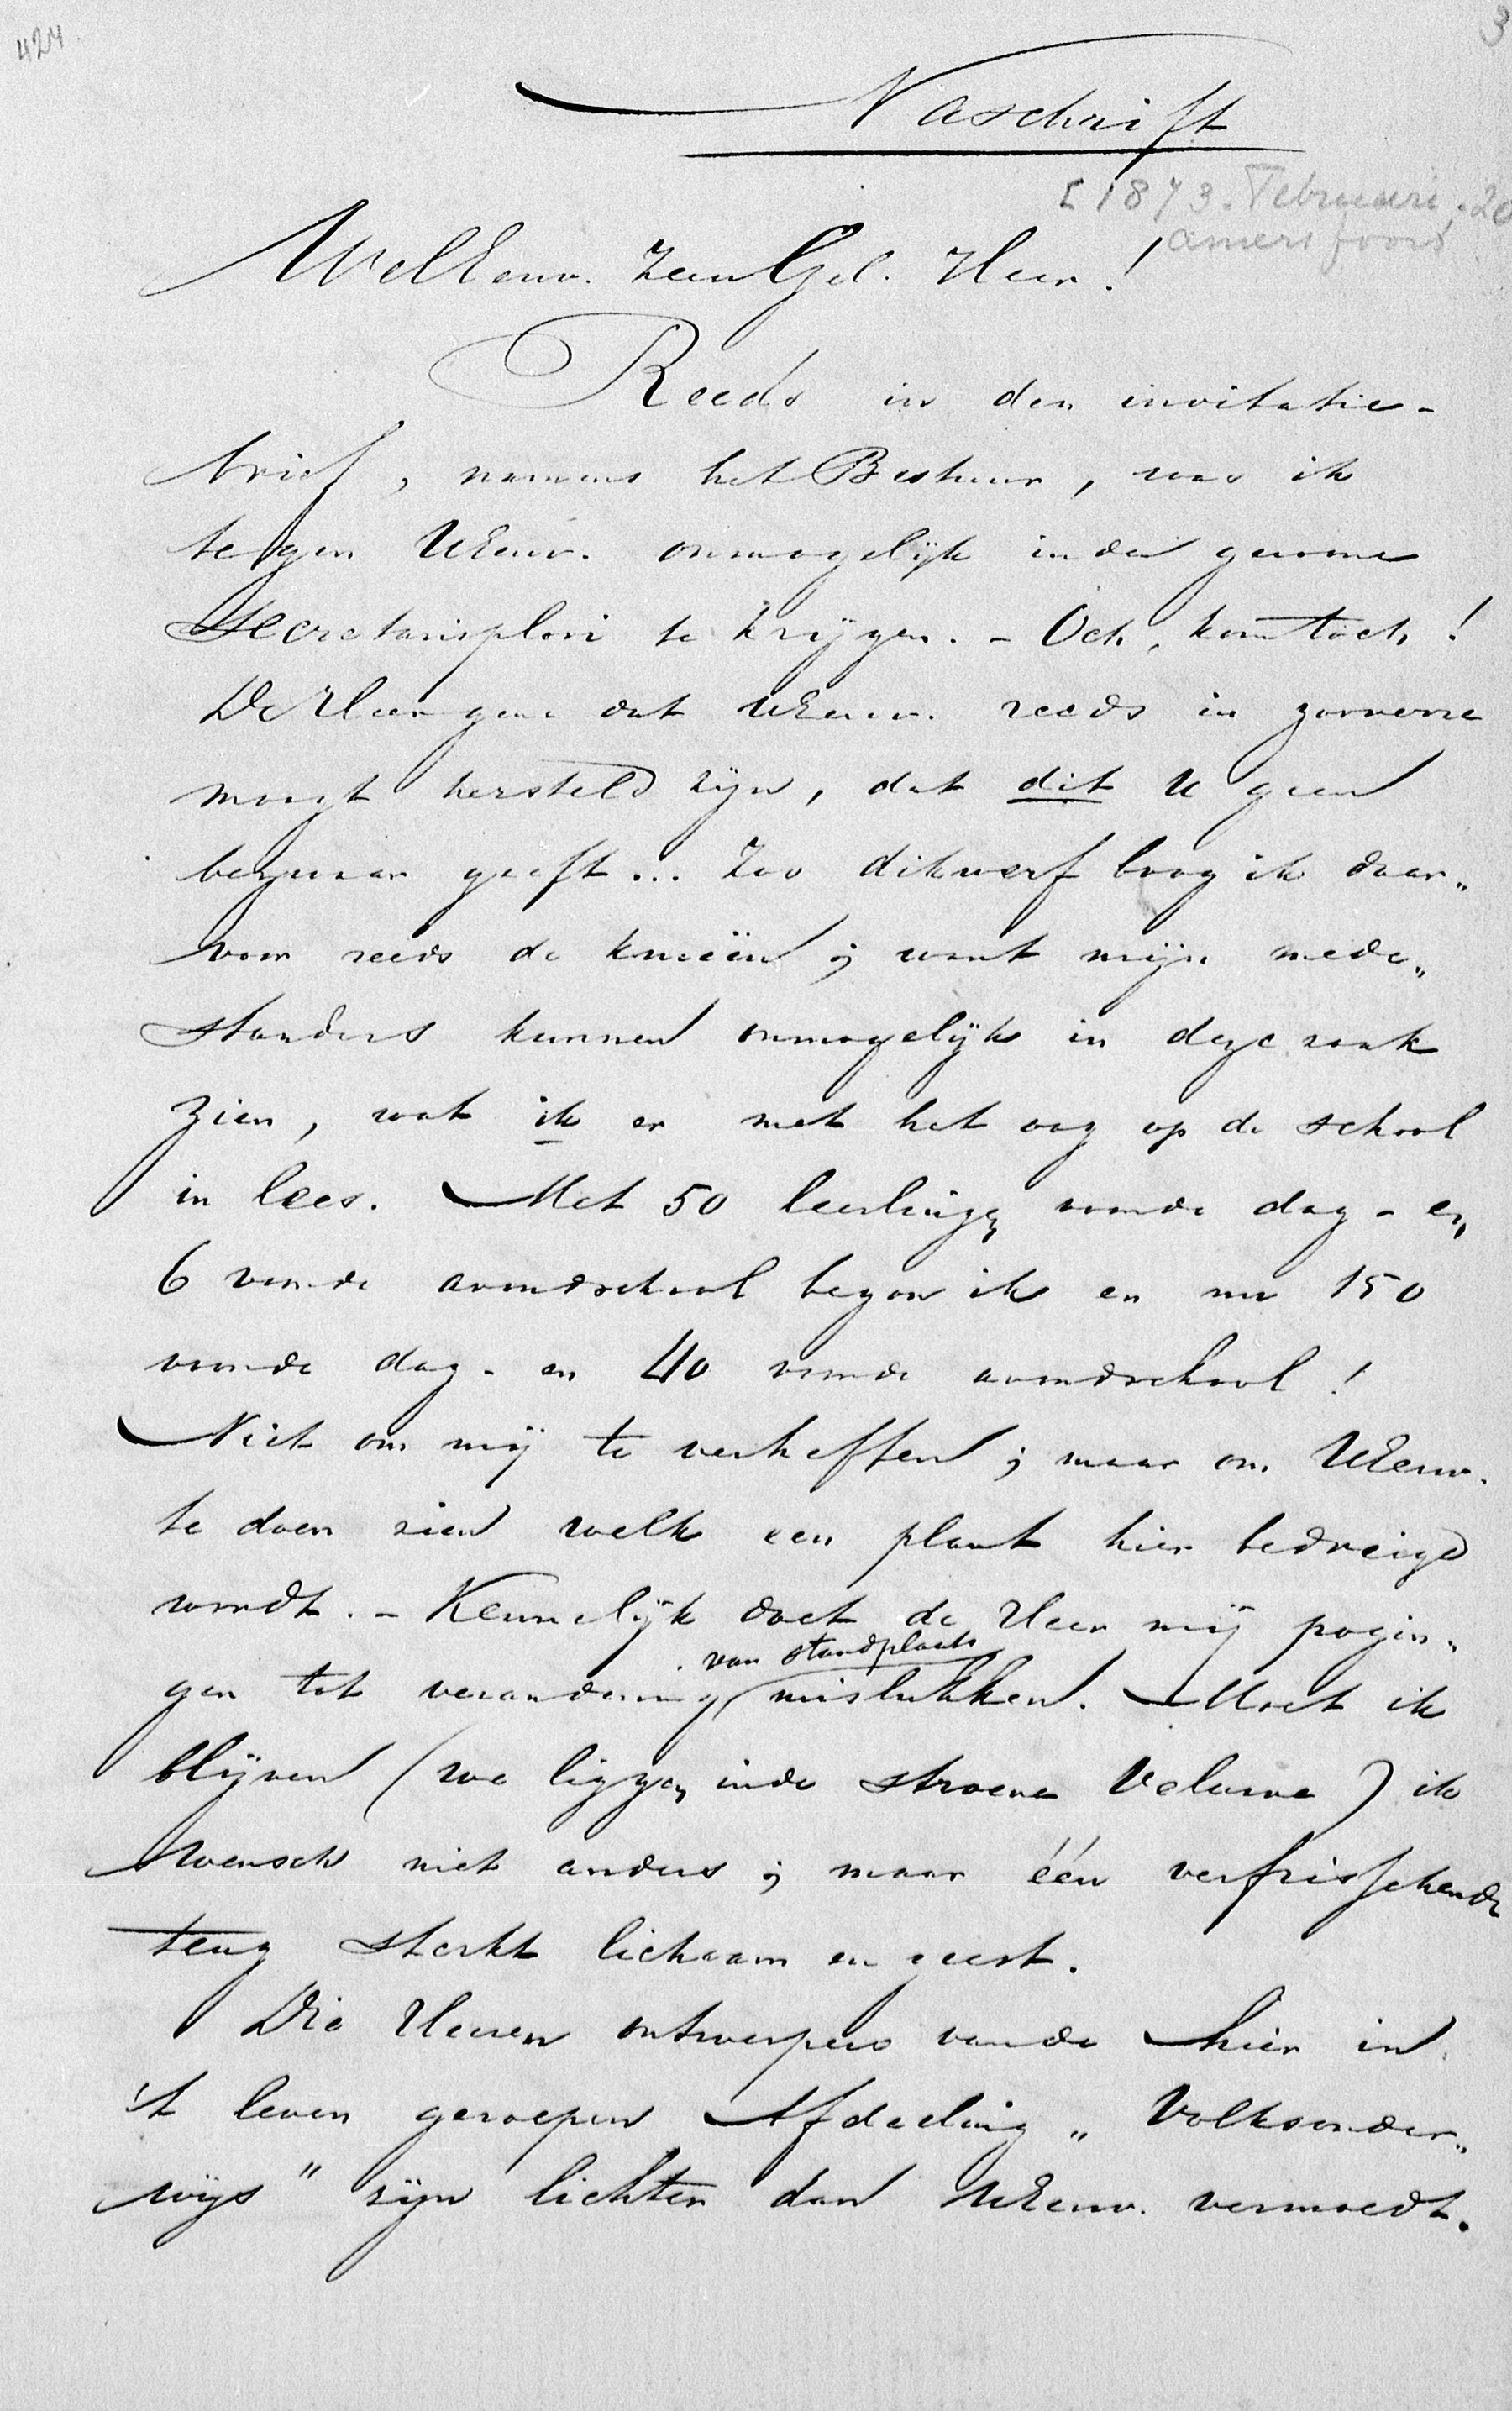 424.
3
Naschrift
[1873. Februari 20
Amersfoort
WelEerw. ZeerGel. Heer!
Reeds in den invitatie-
brief, namens het Bestuur, was ik
tegen UEerw. onmogelijk in den gewone
secretarisplooi te krijgen. - Och, kom toch!
De Heer geve dat UEerw. reeds in zooverre
moogt hersteld zijn, dat dit U geen
bezwaar geeft... Zoo dikwerf boog ik daar„
voor reeds de knieën; want mijne mede„
standers kunnen onmogelijk in deze zaak
zien, wat ik er met het oog op de school
in lees. Met 50 leerlingen vande dag- en
6 vande avondschool begon ik en nu 150
vande dag- en 40 vande avondschool!
Niet om mij te verheffen; maar om UEerw.
te doen zien welk een plant hier bedreigd
wordt. - Kennelijk doet de Heer mij pogin„
van standplaats
gen tot verandering mislukken. Moet ik
blijven (we liggen inde stroeve Veluwe) ik
wensch niet anders; maar één verfrisschende
teug sterkt lichaam en geest.
Die Heeren ontwerpers vande hier in
't leven geroepen Afdeeling „Volksonder„
wijs" zijn lichter dan UEerw. vermoedt.